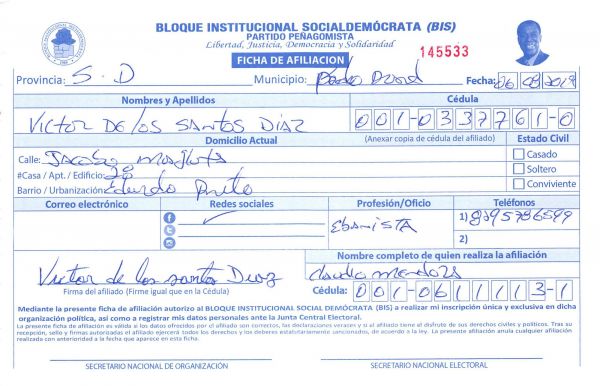 BLOQUE INSTITUCIONAL SOCIALDEMÓCRATA (BIS)
PARTIDO PEÑAGOMISTA
Libertad, Justicia, Democracia y Solidaridad
FICHA DE AFILIACION
145533
Provincia: S. D Municipio: Fecha:
Nombres y Apellidos Cédula
VICTOR DE LOS SANTOS DIAZ 001-0337761-0
Domicilio Actual (Anexar copia de cédula del afiliado) Estado Civil
Calle: Jacobo
#Casa / Apt. / Edificio: 28
Barrio / Urbanización: Eduardo Brito
Casado
Soltero
Conviviente
Correo electrónico Redes sociales Profesión/Oficio Teléfonos
Ebanista
1) 8295786599
2)
Nombre completo de quien realiza la afiliación
Victor de los santos Diaz
Claudio Mendoza
Firma del afiliado (Firme igual que en la Cédula)
Cédula: 001-0611113-1
Mediante la presente ficha de afiliación autorizo al BLOQUE INSTITUCIONAL SOCIAL DEMÓCRATA (BIS) a realizar mi inscripción única y exclusiva en dicha
organización política, así como a registrar mis datos personales ante la Junta Central Electoral.
La presente ficha de afiliación es válida si los datos ofrecidos por el afiliado son correctos, las declaraciones veraces y si el afiliado tiene el disfrute de sus derechos civiles y políticos. Tras su
recepción, sello y firmas autorizadas el afiliado ejercerá todos los derechos y los deberes estatutariamente sancionados, de acuerdo a la ley. La presente afiliación anula cualquier afiliación
realizada con anterioridad a la fecha que aparece en esta ficha.
SECRETARIO NACIONAL DE ORGANIZACIÓN SECRETARIO NACIONAL ELECTORAL